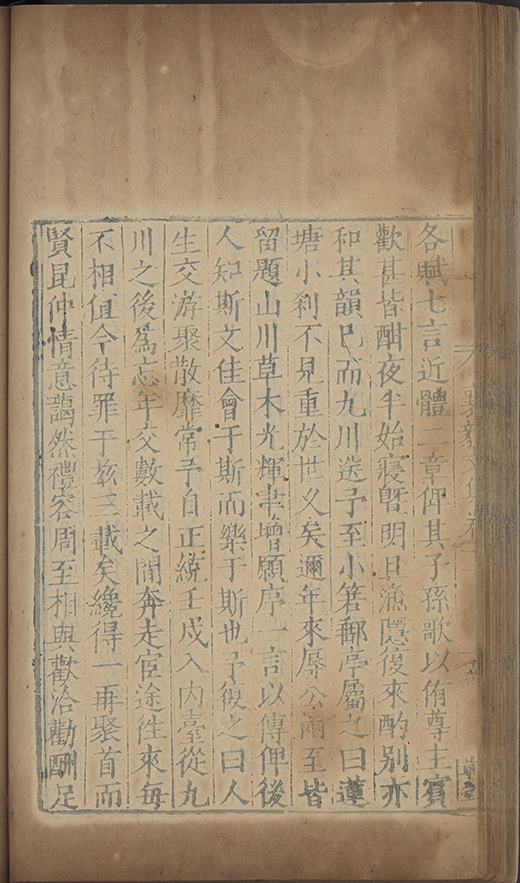 各賦七言近體一章俾其子孫歌以侑尊主賓
歡甚皆酣夜半始寢曁明日漁隱復來酌别亦
和其韻巳而九川送予至小箬郵亭屬之曰蓮
塘小刹不見重於世久矣邇年來辱公兩至皆
留題山川草木光輝聿增願序一言以傳俾後
人知斯文佳會于斯而樂于斯也予復之曰人
生交游聚散靡常予自正統壬戍入内臺從九
川之後爲忘年交數載之間奔走宦途徃來每
不相値今待罪于玆三載矣纔得一再聚首而
賢昆仲情意藹然禮容周至相與歡洽勸酬足